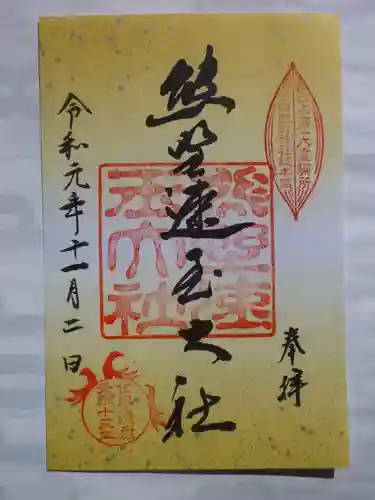 奉拝
熊野速玉大社
令和元年十一月二日
熊野速玉大社